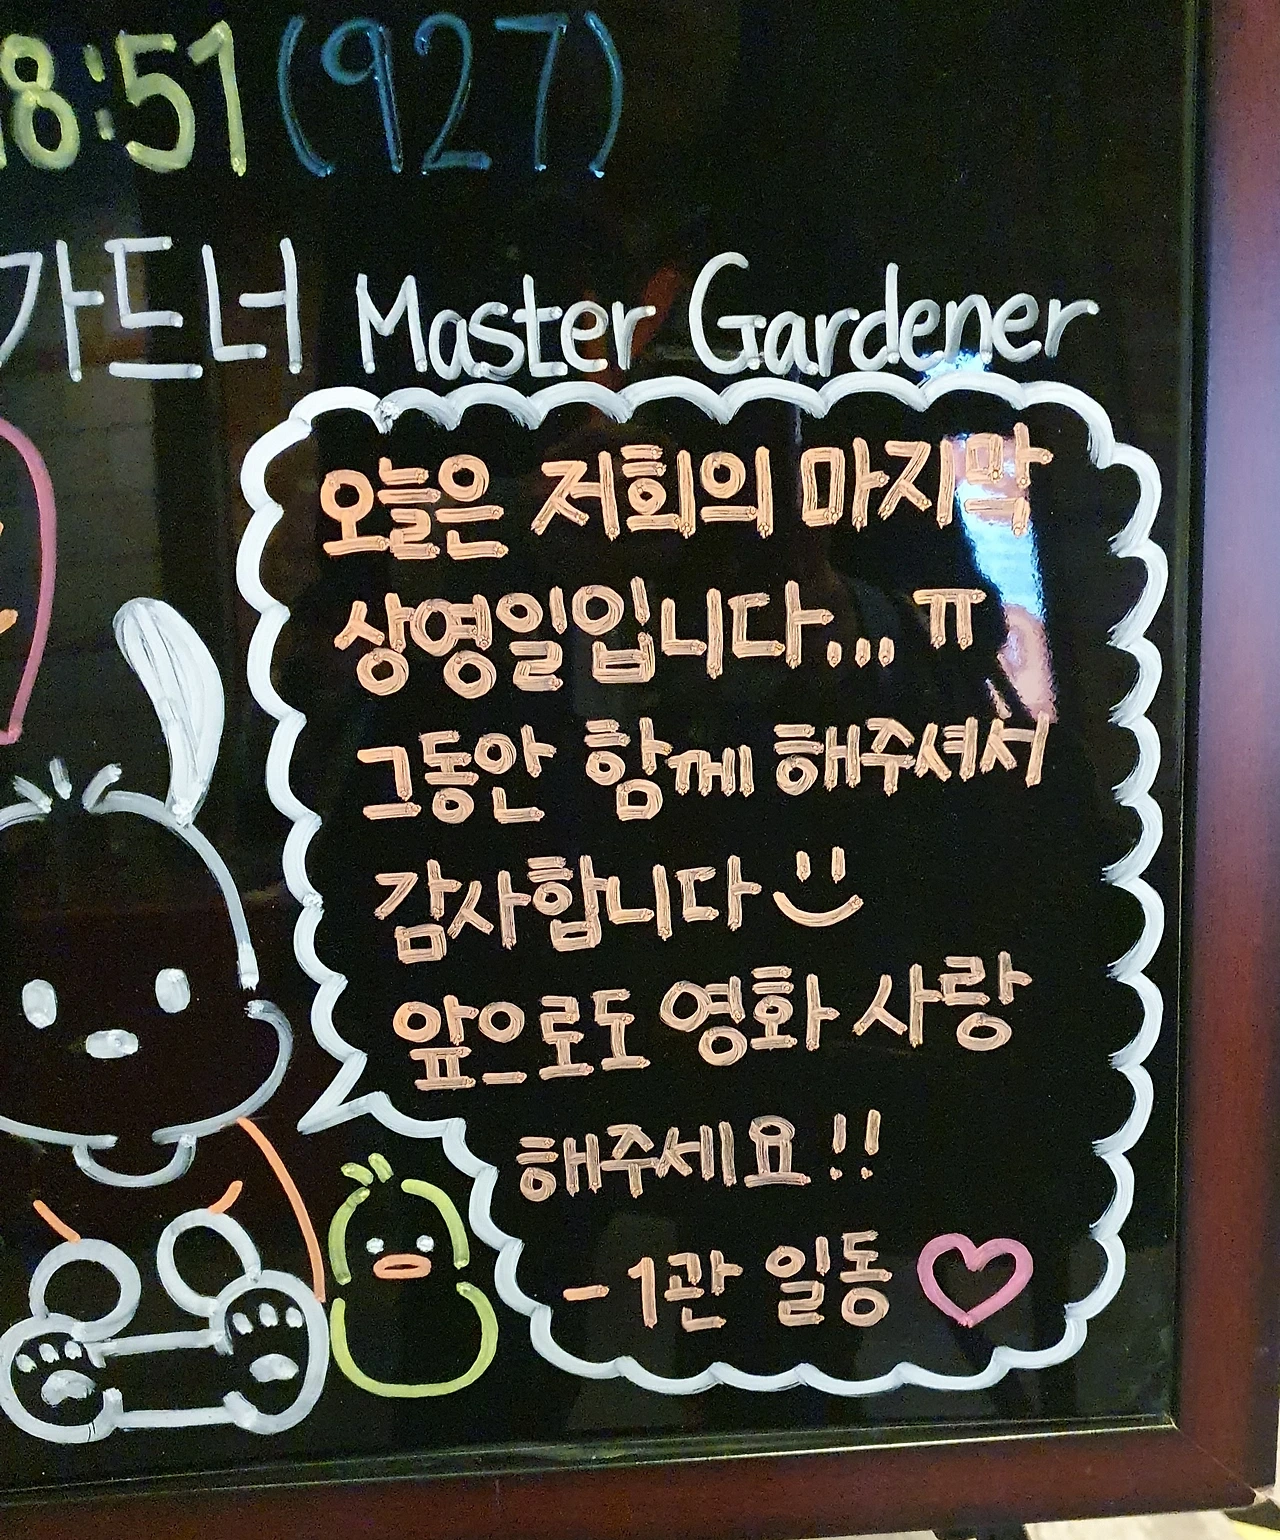 8:51 (927)
가드너 Master Gardener
오늘은 저희의 마지막
상영일입니다... ㅠ
그동안 함께 해주셔서
감사합니다
앞으로도 영화 사랑
해주세요!!
- 1관 일동 ♡